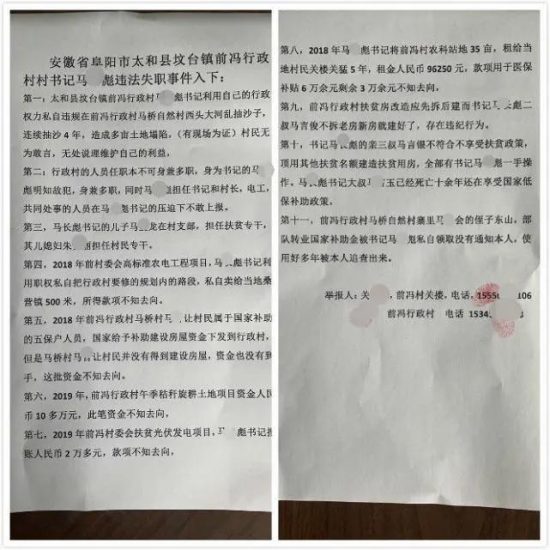 安徽省阜阳市太和县坟台镇前冯行政
村村书记马 彪违法失职事件入下：
第一，太和县坟台镇前冯行政村马 彪书记利用自己的行政
权力私自违规在前冯行政村马桥自然村西头大河乱抽沙子，
连续抽沙 4 年，造成多亩土地塌陷，（有现场为证）村民无
为敢言，无处说理维护自己的利益，
第二，行政村的人员任职本不可身兼多职，身为书记的马
彪明知故犯，身兼多职，同时马 彪担任书记和村长，电工，
共同处事的人员在马 彪的压迫下不敢上报。
第三，马长彪书记的儿子马 龙在村支部，担任扶贫专干，
其儿媳妇朱 担任村民专干。
第四，2018 年前村委会高标准农电工程项目，马 彪书记利
用职权私自把行政村要修的规划内的路段，私自卖给当地桑
营镇 500 米，所得款项不知去向。
第五，2018 年前冯行政村马桥村马 工程项目，属于国家补助
的五保户人员，国家给予补助建设房屋资金下发到行政村，
但是马桥村马 让村民并没有得到建设房屋，资金也没有到
手，这批资金不知去向。
第六，2019 年，前冯行政村午季秸秆旋耕土地项目资金人民
币 10 多万元，此笔资金不知去向。
第七，2019 年前冯村委会扶贫光伏发电项目，马 彪书记报
账人民币 2 万多元，款项不知去向，
第八，2018 年马 彪书记将前冯村农科站地 35 亩，租给当
地村民关楼关猛 5 年，租金人民币 96250 元，款项用于医保
补贴 6 万余元剩余 3 万余元不知去向。
第九，前冯行政村扶贫房改造应先拆后建而书记马 彪二
叔马言俊不拆老房新房就建好了，存在违纪行为。
第十，书记马 彪的亲三叔马言银不符合不享受扶贫政策，
顶用其他扶贫名额建造扶贫用房，全部有书记马 彪一手操
作。马 彪书记大叔马 玉已经死亡十余年还在享受国家低
保补助政策。
第十一，前冯行政村马桥自然村寨里马 会的侄子东山，部
队转业国家补助金被书记马 彪私自领取没有通知本人，使
用好多年被本人追查出来。
举报人：关 ，前冯村关搂，电话，1555 106
前冯行政村 电话 1534